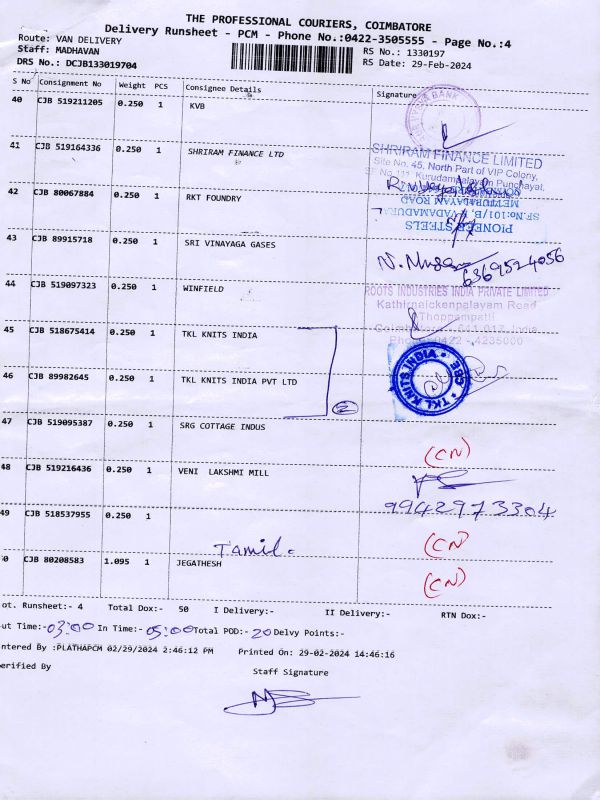 THE PROFESSIONAL COURIERS, COIMBATORE
Delivery Runsheet - PCM - Phone No.:0422-3505555 - Page No.:4
Route: VAN DELIVERY
RS No.: 1330197
Staff: MADHAVAN
RS Date: 29-Feb-2024
DRS No.: DCJB133019704
S No Consignment No Weight PCS Consignee Details Signature
40 CJB 519211205 0.250 1 KVB
BANK
41 CJB 519164336 0.250 1 SHRIRAM FINANCE LTD
SHRIRAM FINANCE LIMITED
Site No. 45, North Part of VIP Colony,
SF No 111, Kurudampalayam Punchayat,
42 CJB 80067884 0.250 1 RKT FOUNDRY
METTUPALAYAM ROAD
SF.No:101/B, K.VADAMADURAI
PIONEER STEELS
43 CJB 89915718 0.250 1 SRI VINAYAGA GASES
6369524056
44 CJB 519097323 0.250 1 WINFIELD
ROOTS INDUSTRIES INDIA PRIVATE LIMITED
Kathirnaickenpalayam Road
Thoppampatti
Coimbatore - 641 017, India
Phone: 0422 - 4235000
45 CJB 518675414 0.250 1 TKL KNITS INDIA
TKL KNITS INDIA * CBE *
46 CJB 89982645 0.250 1 TKL KNITS INDIA PVT LTD
2
47 CJB 519095387 0.250 1 SRG COTTAGE INDUS
(CN)
48 CJB 519216436 0.250 1 VENI LAKSHMI MILL
9942973304
49 CJB 518537955 0.250 1
(CN)
Tamil.
0 CJB 80208583 1.095 1 JEGATHESH
(CN)
ot. Runsheet:- 4 Total Dox:- 50 I Delivery:- II Delivery:- RTN Dox:-
ut Time:- 03:00 In Time:- 05:00 Total POD:- 20 Delvy Points:-
ntered By :PLATHAPCM 02/29/2024 2:46:12 PM Printed On: 29-02-2024 14:46:16
erified By Staff Signature